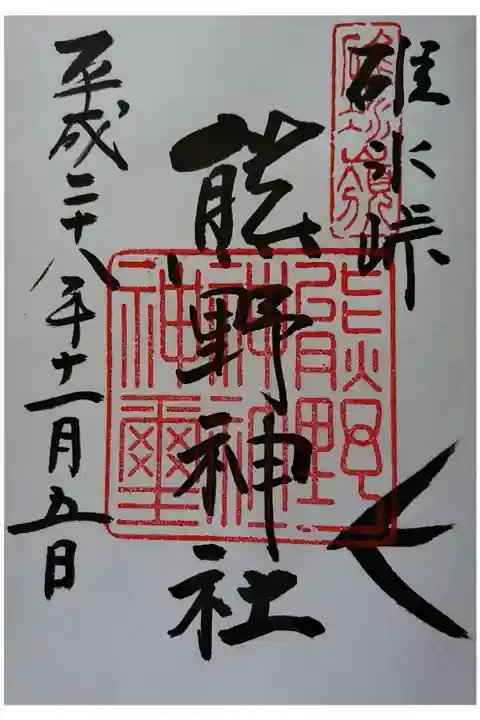 碓氷峠
熊野神社
平成二十八年十一月五日
碓氷嶺
熊野
神社
神璽